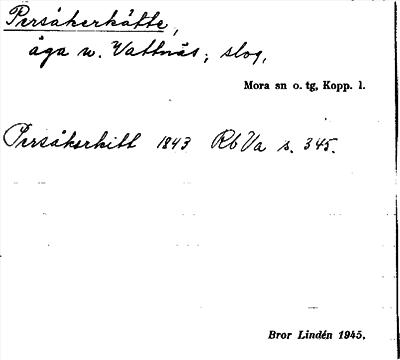 Persåkerkätte,
äga w. Vattnäs; slog,
Mora sn o. tg, Kopp. l.
Persåkerkitt 1843 RbVa s. 345.
Bror Lindén 1945.